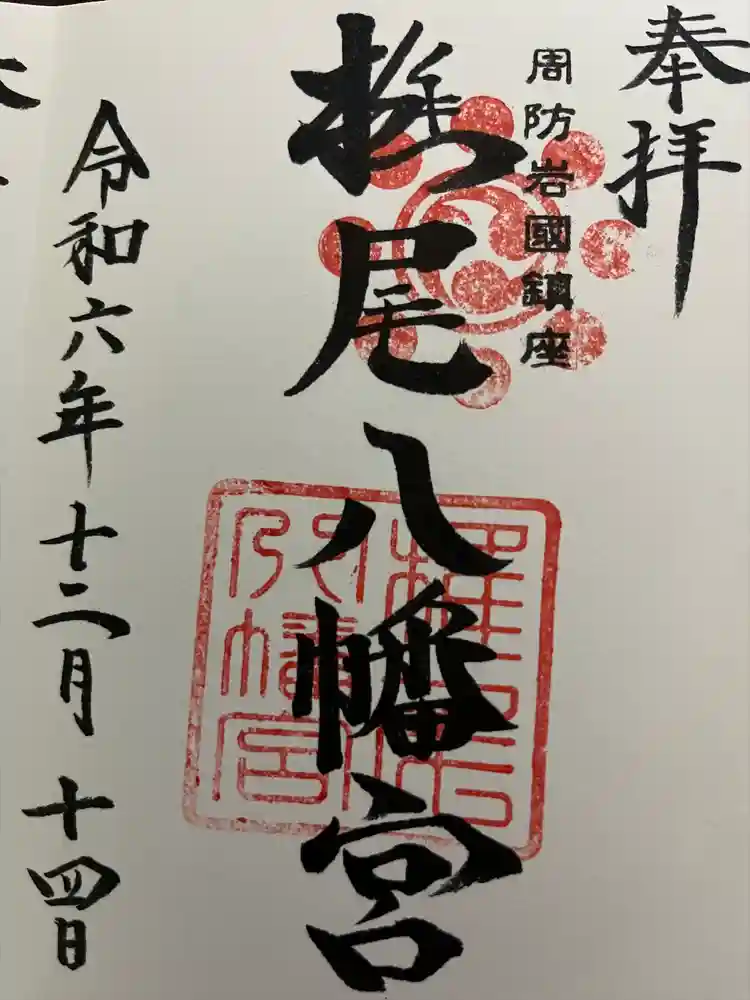 奉拝
周防岩國鎮座
椎尾八幡宮
令和六年十二月十四日
八幡宮